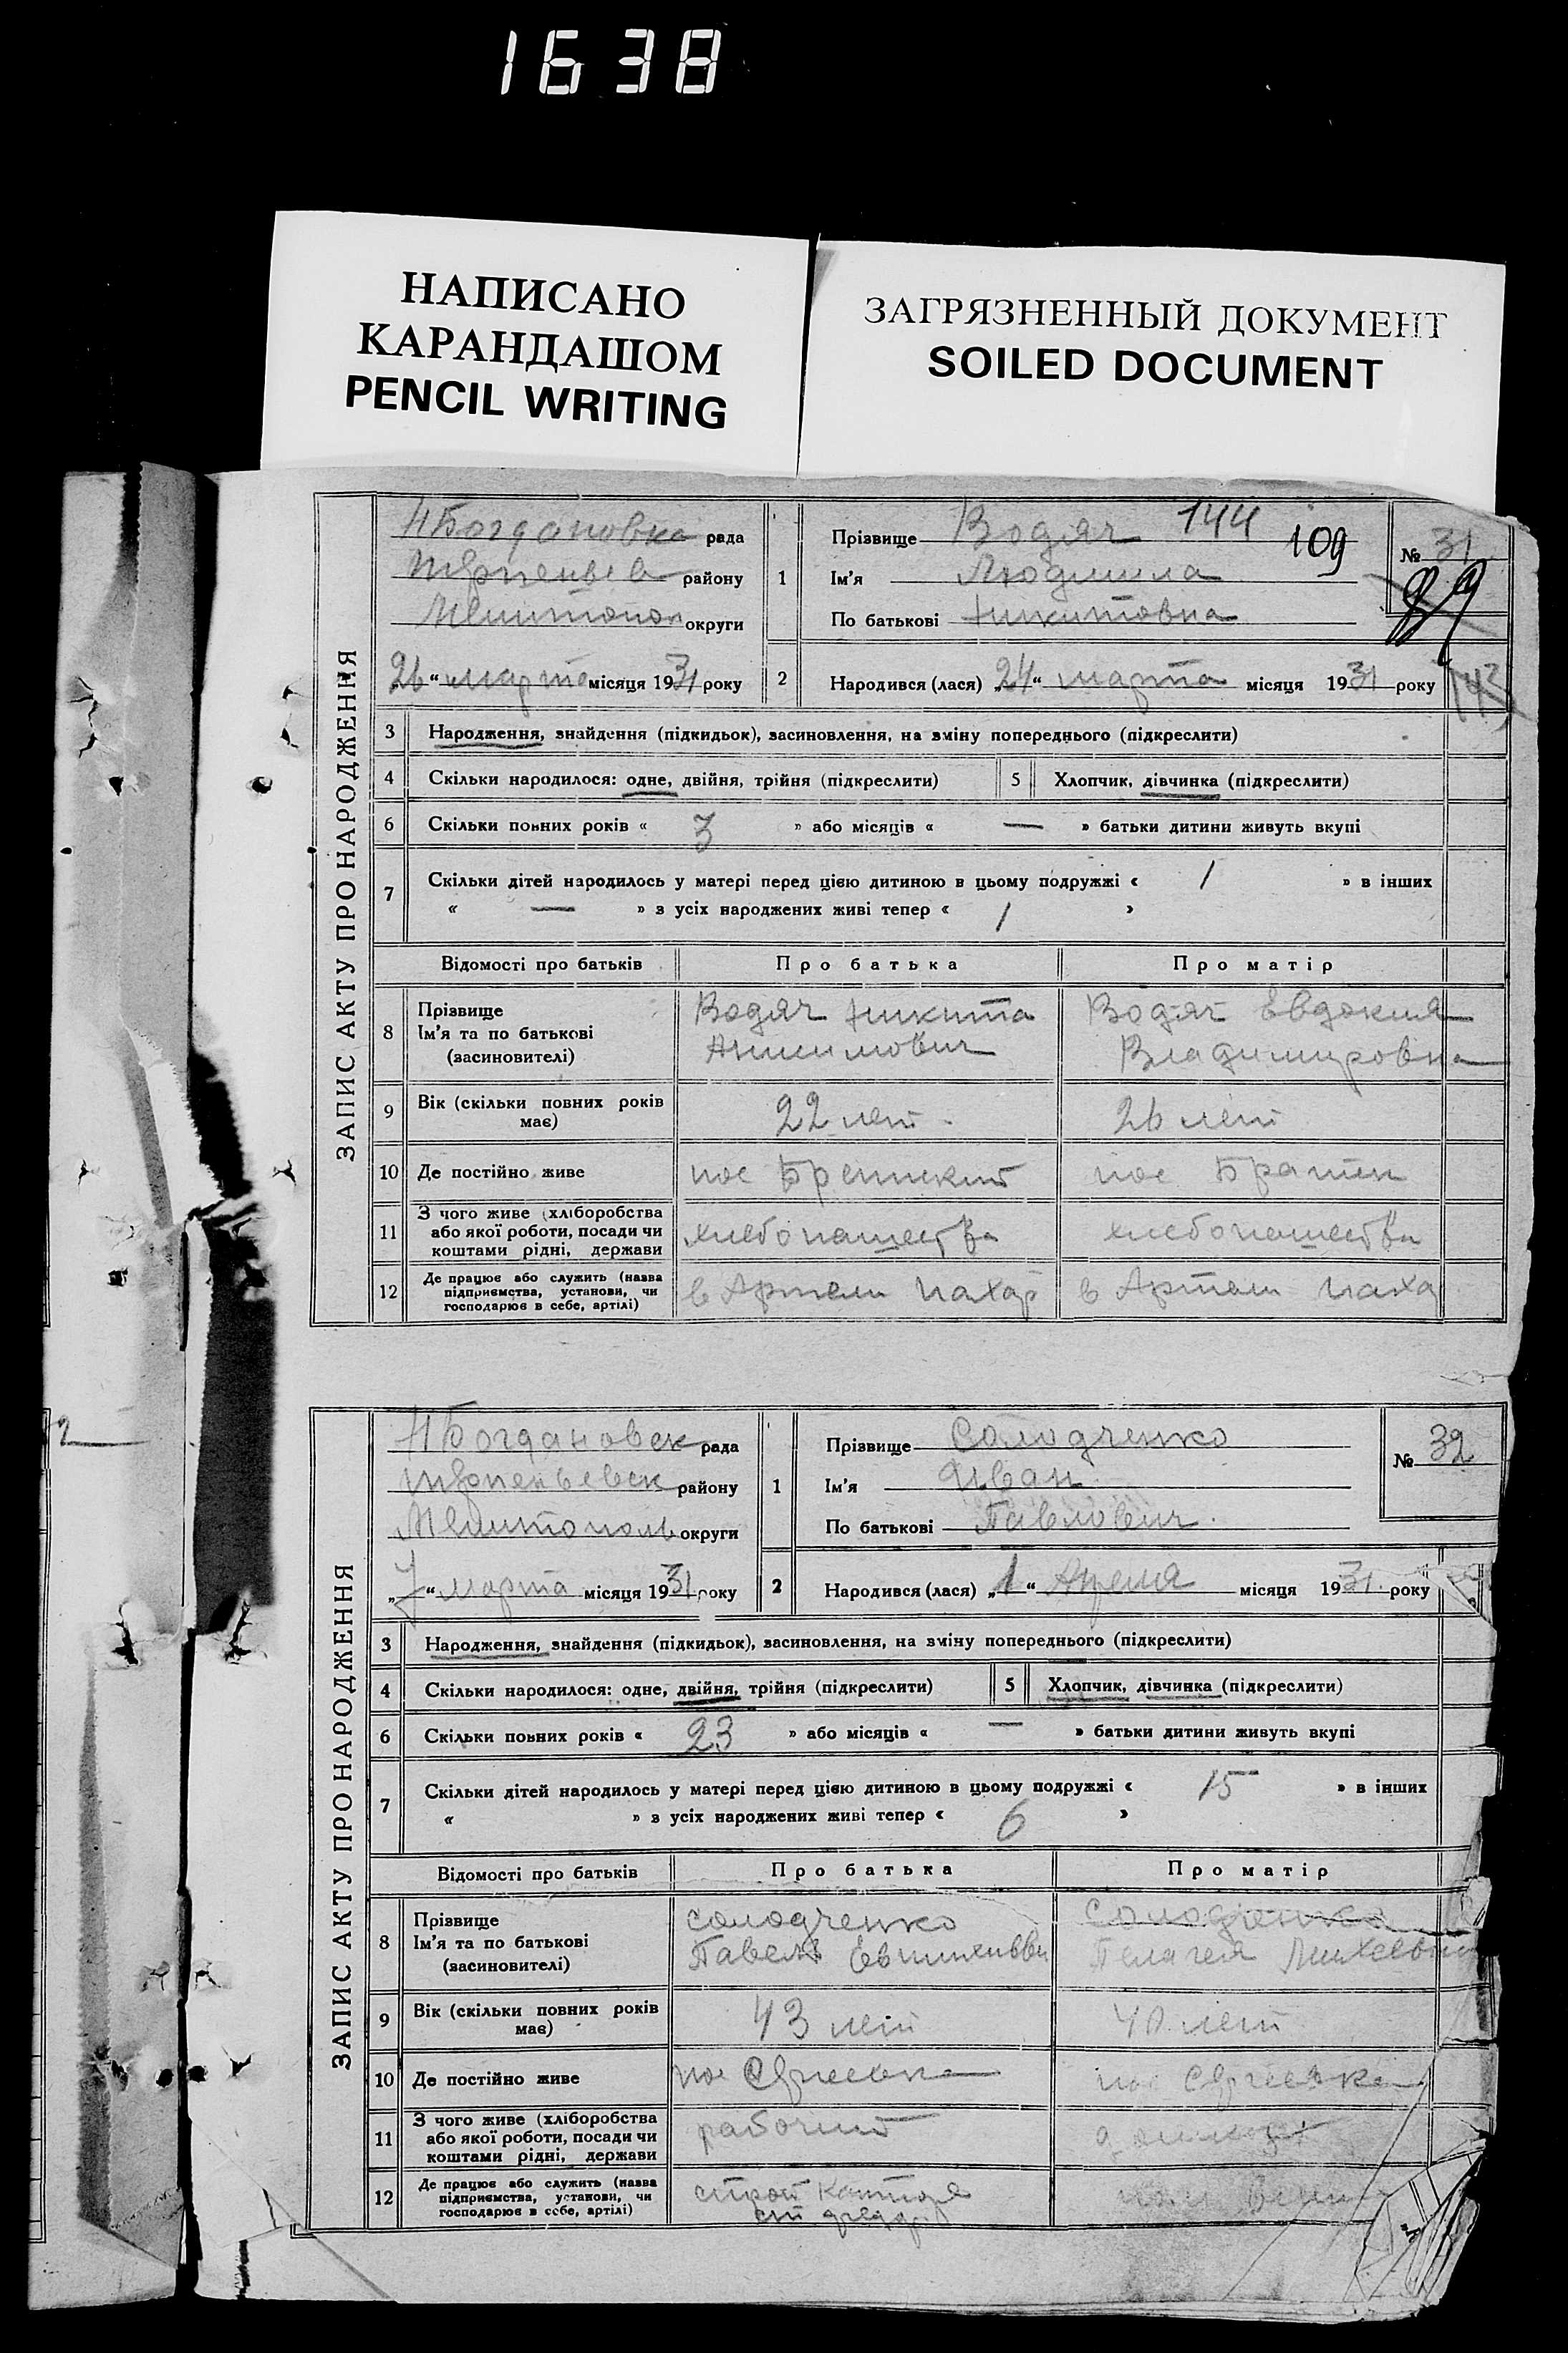 1638
НАПИСАНО
КАРАНДАШОМ
PENCIL WRITING
ЗАГРЯЗНЕННЫЙ ДОКУМЕНТ
SOILED DOCUMENT
ЗАПИС АКТУ ПРО НАРОДЖЕННЯ
Н Богдановка рада
району
округи
26 “ марта місяця 1931 року
1
Прізвище Водяч 144
109
Ім'я Людмила
По батькові Никитовна
№ 31
89
2 Народився (лася) „24“ марта місяця 1931 року
3 Народження, знайдення (підкидьок), засиновлення, на зміну попереднього (підкреслити)
4 Скільки народилося: одне, двійня, трійня (підкреслити) 5 Хлопчик, дівчинка (підкреслити)
6 Скільки повних років « 3 » або місяців « — » батьки дитини живуть вкупі
7 Скільки дітей народилось у матері перед цією дитиною в цьому подружжі « 1 » в інших
« — » з усіх народжених живі тепер « 1 »
Відомості про батьків Про батька Про матір
8 Прізвище
Ім'я та по батькові
(засновителі)
Водяч Никита
Анисимович
Водяч Евдокия
Владимировна
9 Вік (скільки повних років
має)
22 лет 26 лет
10 Де постійно живе пос пос
11 З чого живе (хліборобства
або якої роботи, посади чи
коштами рідні, держави
хлебопашества хлебопашества
12 Де працює або служить (назва
підприємства, установи, чи
господарює в себе, артілі)
в Артели Пахар в Артели Паха
ЗАПИС АКТУ ПРО НАРОДЖЕННЯ
Н Богдановск рада
району
Мелитополь округи
„7“ марта місяця 1931 року
1
Прізвище Солодченко
Ім'я Иван
По батькові Павлович
№ 32
2 Народився (лася) „1“ Апреля місяця 1931 року
3 Народження, знайдення (підкидьок), засиновлення, на зміну попереднього (підкреслити)
4 Скільки народилося: одне, двійня, трійня (підкреслити) 5 Хлопчик, дівчинка (підкреслити)
6 Скільки повних років « 23 » або місяців « — » батьки дитини живуть вкупі
7 Скільки дітей народилось у матері перед цією дитиною в цьому подружжі « 15 » в інших
« » з усіх народжених живі тепер « 6 »
Відомості про батьків Про батька Про матір
8 Прізвище
Ім'я та по батькові
(засиновителі)
Солодченко
Павел
Солодченко
Пелагея
9 Вік (скільки повних років
має)
43 лет 40 лет
10 Де постійно живе пос пос
11 З чого живе (хліборобства
або якої роботи, посади чи
коштами рідні, держави
рабочий
12 Де працює або служить (назва
підприємства, установи, чи
господарює в себе, артілі)
строй